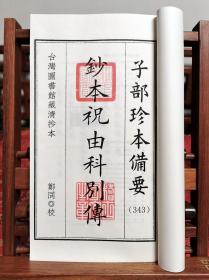 子部珍本備要
(343)
鈔本祝由科別傳
台灣圖書館藏清抄本
鄭同◎校